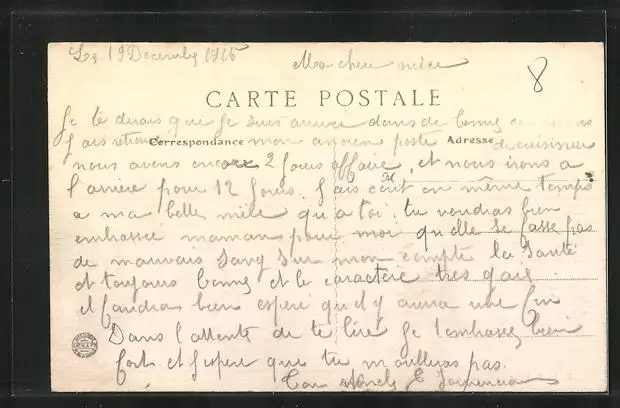 Le 19 Decembre 1915
Ma chere niéce
8
CARTE POSTALE
Je te dirais que je suis arriver dans de bonne
Correspondance
Adresse
j ais retrouvé mon ancien poste de cuisinier
nous avons encore 2 jours affaire, et nous irons a
M
l arriere pour 12 jours. j ais ecrit en même temps
a ma belle mère qu a toi. tu voudras bien
embrassée maman pour moi qu elle se fasse pas
de mauvais sang sur mon compte la santé
et toujours bonne et le caractère tres gaie
il faudras bien esperé qu il y aura une fin
Dans l attente de te lire je t embrasse bien
fort. et j espere que tu m oublieras pas.
Ton oncle E